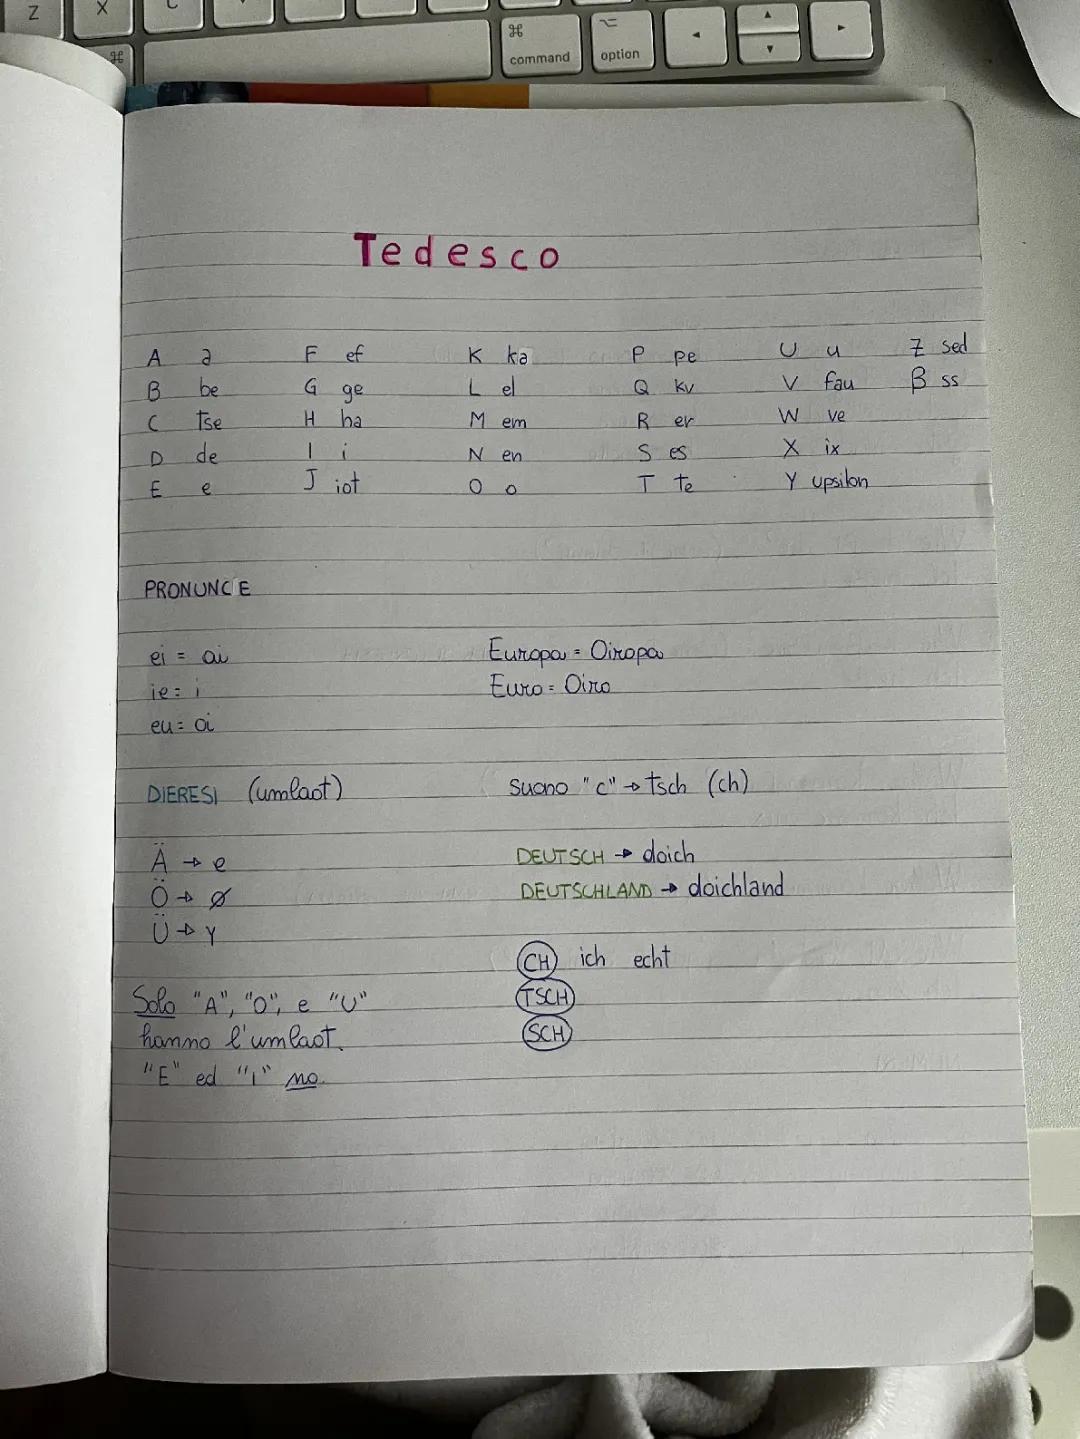 Z X C
⌘ ⌘ command ⌥ option ◂ ▴ ▾ ▸
Tedesco
A a F ef K ka P pe U u Z sed
B be G ge L el Q kv V fau β ss
C tse H ha M em R er W ve
D de I i N en S es X ix
E e J iot O o T te Y upsilon
PRONUNCE
ei = ai Europa = Oiropa
ie = i Euro = Oiro
eu = oi
DIERESI (umlaot) suono "c" → tsch (ch)
Ä → e DEUTSCH → doich
Ö → ø DEUTSCHLAND → doichland
Ü → Y
CH ich echt
Solo "A", "O", e "U" TSCH
hanno l'umlaot. SCH
"E" ed "I" no.